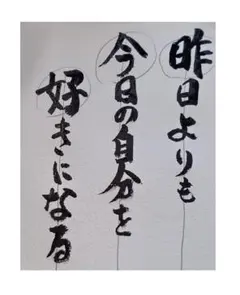 昨日よりも
今日の自分を
好きになる